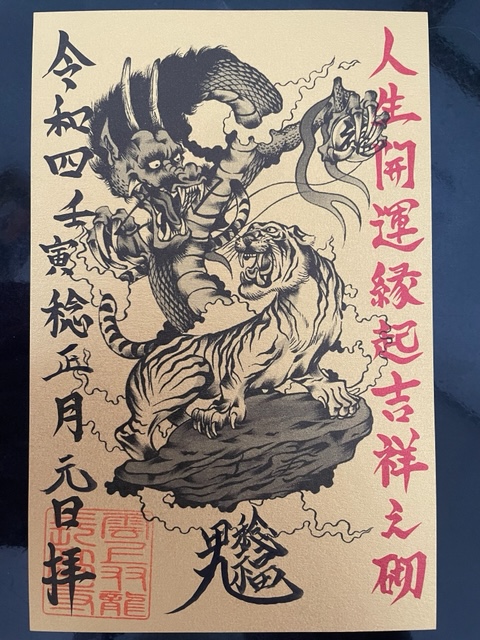 人生開運縁起吉祥之砌
令和四壬寅稔正月元日拝
雲上双龍